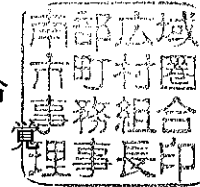 南部広域
市町村圏
事務組合
理事長印
覚